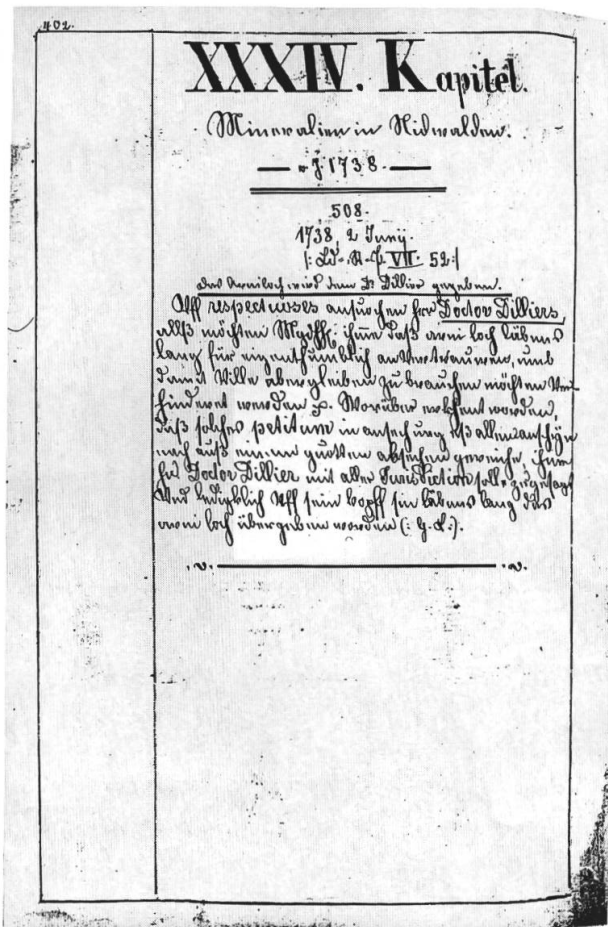 402.
XXXIV. Kapitel.
Mineralien in Nidwalden.
— v. J. 1738. —
508.
1738, 2 Junÿ.
|: Ld.-R.-P. VII. 52:|
das Arniloch wird dem Dr. Dillier gegeben.
Uff respectuoses ansuchen hrr Doctor Dilliers,
allß möchten Mgdhh. ihme daß arni loch läbens
lang für eigenthumblich anvertrauwen, umb
damit Ville abergleiben zu brauchen möchten Ver-
hinderet werden. Worüber erkhent worden,
daß solches petitum in ansechung eß allem anschÿn
nach auß einem guotten absechen gereiche, ihme
hr Doctor Dillier mit aller Jurisdiction solle zuegesagt
Und lediglich Uff sein kopff sin läbens lang das
arni loch übergeben worden (: G. L :).